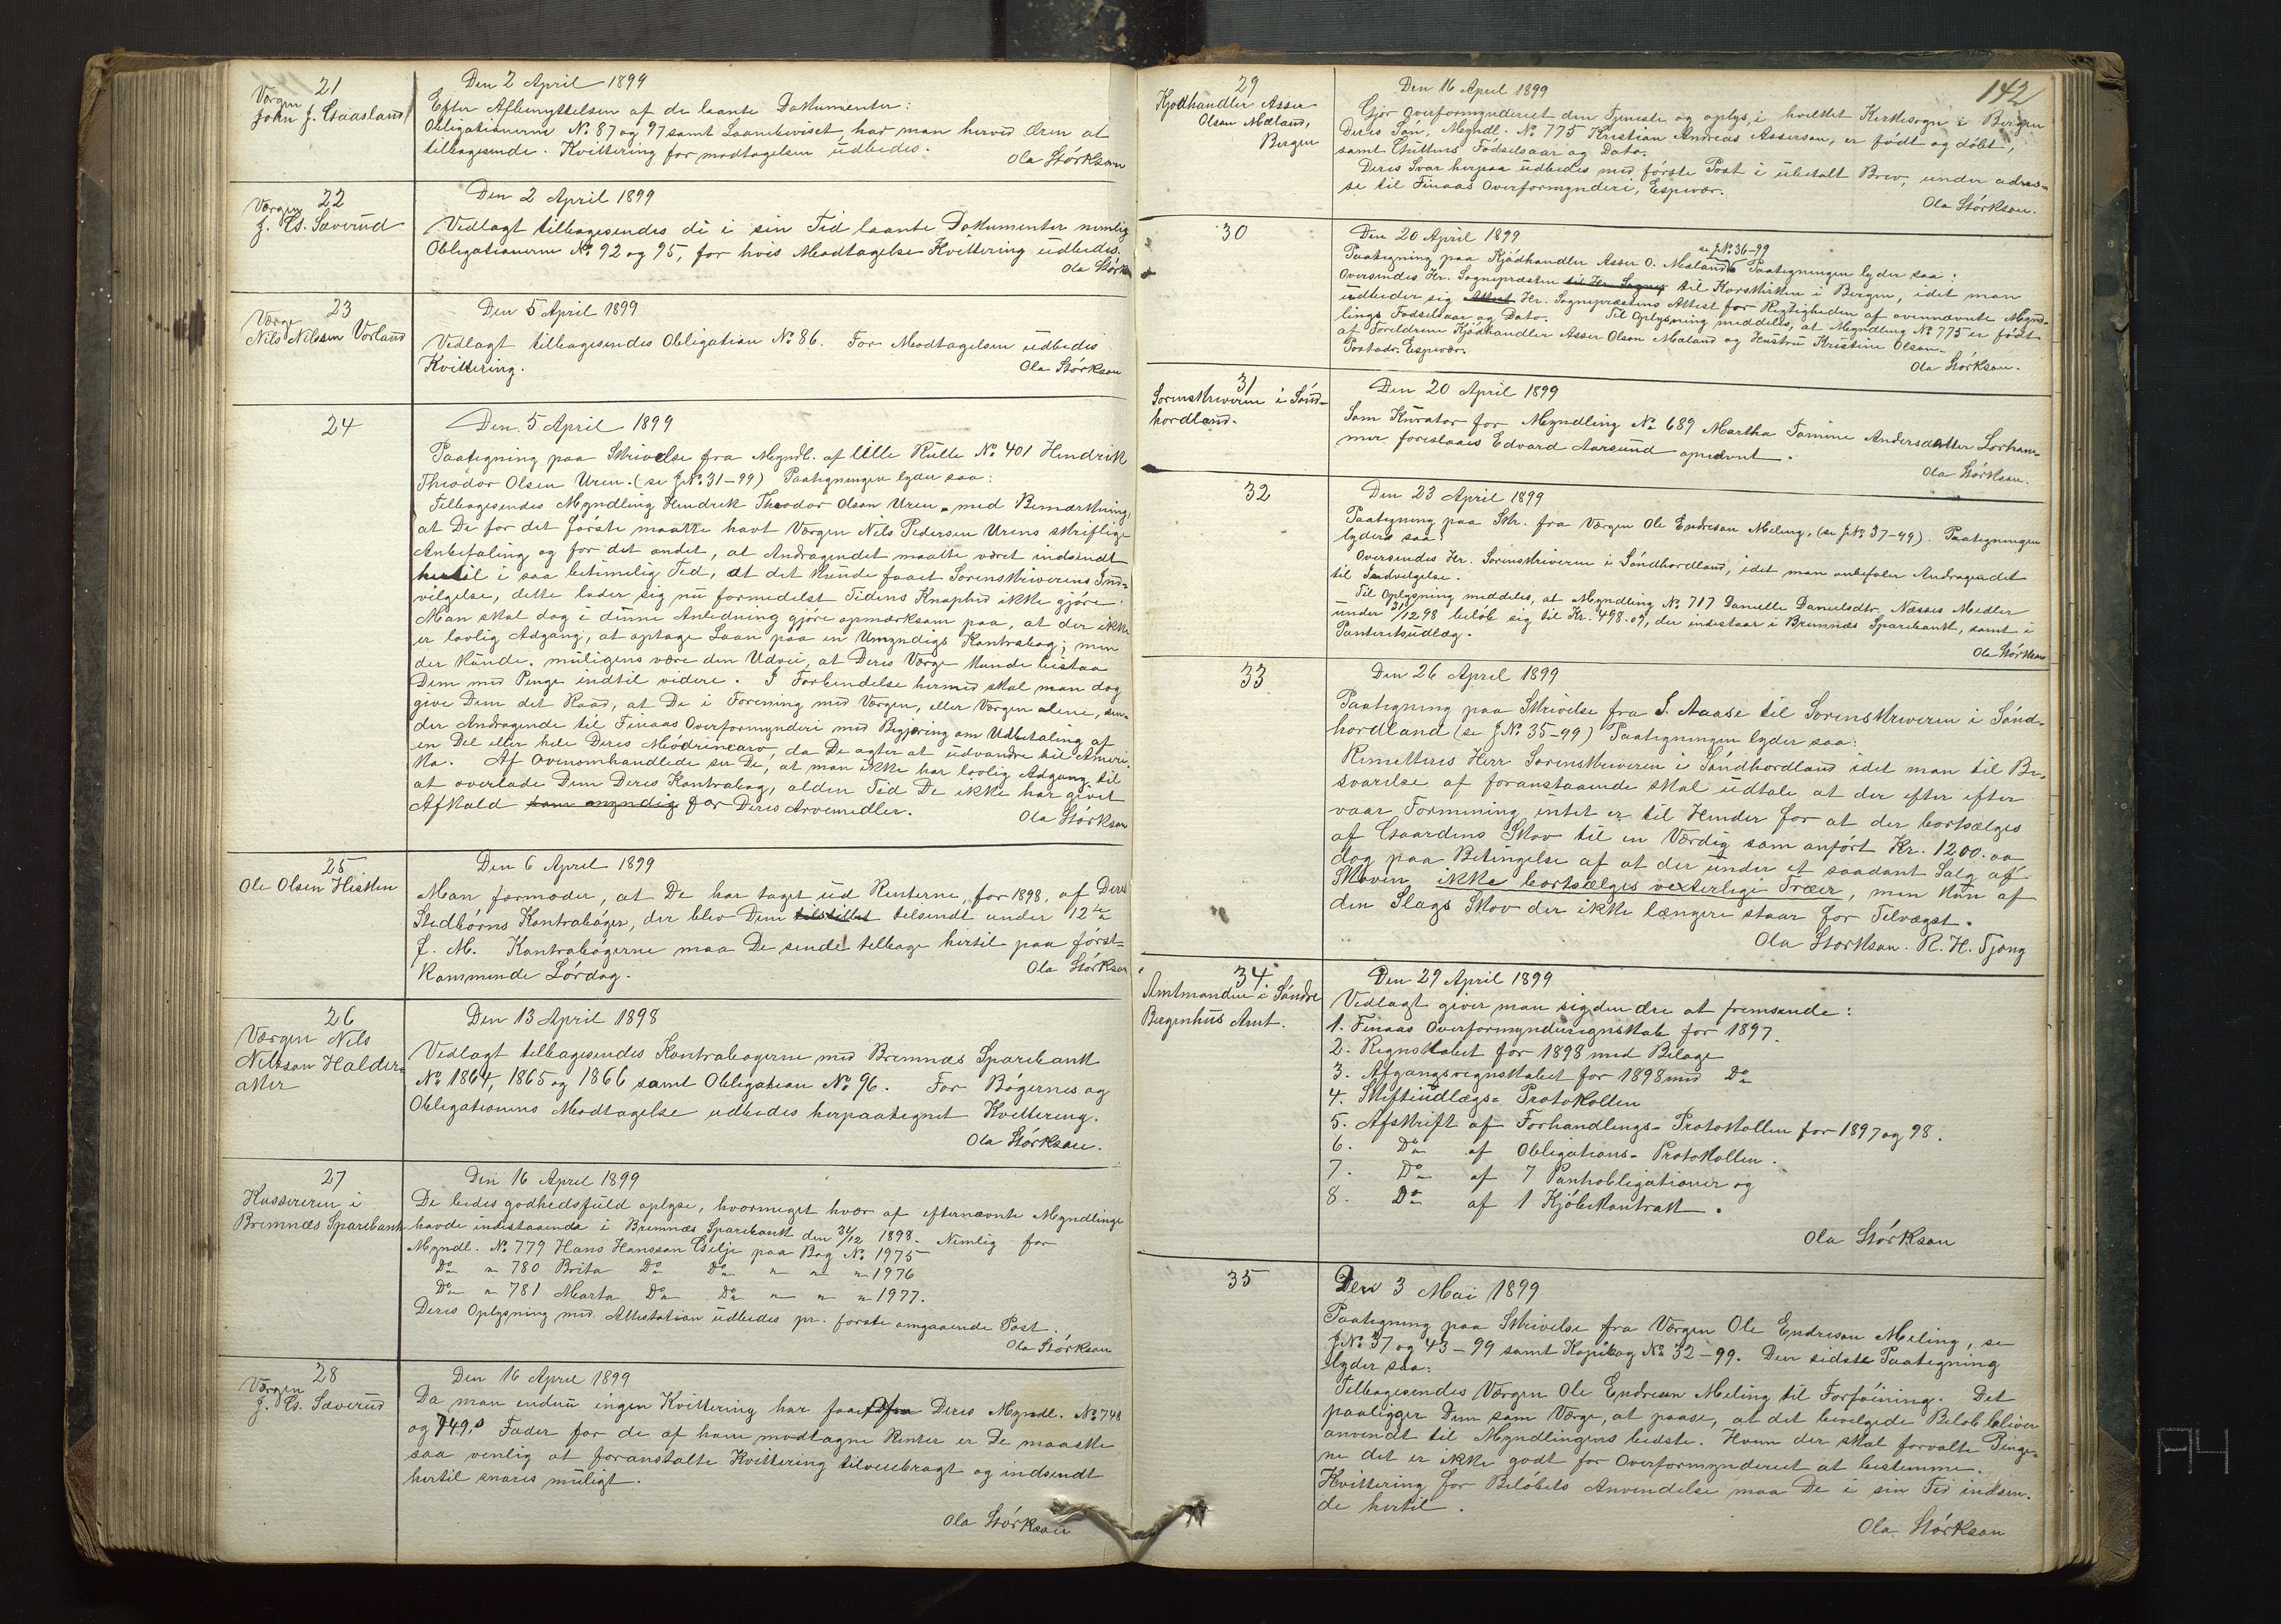 21
Værgen
John J. Gaasland
Den 2 April 1899
Efter Afbenyttelsen af de laante Dokumenter:
Obligationerne No. 87 og 97 samt Laanbeviset, har man herved Æren at
tilbagesende. Kvittering for modtagelsen udbedes.
Ola Størkson
22
Værgen
J. Gs. Sæverud
Den 2 April 1899
Vedlagt tilbagesendes de i sin Tid laante Dokumenter nemlig
Obligationerne No. 92 og 95, for hvis Modtagelse Kvittering udbedes.
Ola Størk
23
Værge
Nils Nilssen Vorland
Den 5 April 1899
Vedlagt tilbagesendes Obligation No. 86. For Modtagelsen udbedes
Kvittering.
Ola Størkson
24
Den 5 April 1899
Paategning paa Skrivelse fra Myndl. af lille Rulle No. 401 Hendrik
Theodor Olsen Uren. (se J.No. 31-99) Paategningen lyder saa:
Tilbagesendes Myndling Hendrik Theodor Olson Uren, med Bemærkning,
at De for det første maatte havt Værgen Nils Pedersen Urens skriftlige
Anbefaling og for det andet, at Andragendet maatte været indsendt
hertil i saa betimelig Tid, at det kunde faaet Sorenskriverens Ind-
vilgelse, dette lader sig nu formedelst Tidens Knaphed ikke gjøre.
Man skal dog i dinne Anledning gjøre opmærksom paa, at der ikke
er lovlig Adgang, at optage Laan paa en Umyndigs Kontrabog; men
der kunde muligens være den Udvei, at Deres Værge kunde bistaa
Dem med Penge indtil videre. I Forbindelse hermed skal man dog
give Dem det Raad, at De i Forening med Værgen, eller Værgen alene, sen-
der Andragende til Finaas Overformynderi med Begjæring om Udbetaling af
en Del eller hele Deres Mødrenearv, da De agter at udvandre til Ameri-
ka. Af Ovenomhandlede ser De, at man ikke har lovlig Adgang til
at overlade Dem Deres Kontrabog, alden Tid De ikke har givet
Afkald som myndig for Deres Arvemedler.
Ola Størkson
25
Ole Olsen Hisken
Den 6 April 1899
Man formoder, at De har taget ud Renterne, for 1898, af Deres
Stedbørns Kontrabøger, der blev Dem tilstillet tilsendt under 12te
f. M. Kontrabøgerne maa De sende tilbage hertil paa først-
kommende Lørdag.
Ola Størkson
26
Værgen Nils
Nilsson Halder-
aker
Den 13 April 1898
Vedlagt tilbagesendes Kontrabogerne med Bremnæs Sparebank
No. 1864, 1865 og 1866 samt Obligation No. 96. For Bøgernes og
Obligationens Modtagelse udbedes herpaategnet Kvittering.
Ola Størkson.
27
Kassereren i
Bremnæs Sparebank
Den 16 April 1899
De bedes godhedsfuld oplyse, hvormeget hver af efternævnte Myndlinge
havde indestaaende i Bremnæs Sparebank den 31/12 1898. Nemlig for
Myndl. No. 779 Hans Hansson Gilje paa Bog No. 1975
Do " 780 Brita Do Do " " " 1976
Do " 781 Marta Do Do " " " 1977.
Deres Oplysning med Attestation udbedes pr. første omgaaende Post.
Ola Størkson
28
Værgen
J. Gs. Sæverud
Den 16 April 1899
Da man endnu ingen Kvittering har faaet fra Deres Myndl. No. 748
og 749,s Fader for de af ham modtagne Renter er De maaske
saa venlig at foranstalte Kvittering tilveiebragt og indsendt
hertil snares muligt.
Ola Størkson
142
29
Kjødhandler Asser
Olson Mæland,
Bergen
Den 16 April 1899
Gjør Overformynderiet den Tjeneste og oplys, i hvilket Kirkesogn i Bergen
Deres Søn, Myndl. No. 775 Kristian Andreas Asserson, er født og døbt,
samt Guttens Fødselsaar og Dato.
Deres Svar herpaa udbedes med første Post i ubetalt Brev, under adres-
se til Finaas Overformynderi, Espevær.
Ola Størkson.
30
Den 20 April 1899
se J.No. 36-99
Paategning paa Kjødhandler Asser O. Mæland Paategningen lyder saa:
Oversendes Hr. Sognepræsten til Hr. Sogne til Korskirken i Bergen, idet man
udbeder sig Attest Hr. Sognepræstens Attest for Rigtigheden af ovennævnte Mynd-
lings Fødselsaar og Dato. Til Oplysning meddeles, at Myndling No. 775 er født
af Foreldrene Kjødhandler Asser Olson Mæland og Hustru Kristine Olson.
Postadr. Espevær.
Ola Størkson.
31
Sorenskriveren i Sønd-
hordland.
Den 20 April 1899
Som Kurator for Myndling No. 689 Martha Tomine Andersdatter Lorham-
mer foreslaaes Edvard Aarsund opnævnt.
Ola Størkson.
32
Den 23 April 1899
Paategning paa Skr. fra Værgen Ole Endreson Meling, (se J.No. 37-99). Paategningen
lyder saa:
Oversendes Hr. Sorenskriveren i Søndhordland, idet man anbefaler Andragendet
til Indvelgelse.
Til Oplysning meddeles, at Myndling No. 717 Danielle Danielsdtr. Næsses Medler
under 31/12 98 beløb sig til Kr. 498.09, der indestaar i Bremnæs Sparebank, samt i
Panteretsudlæg.
Ola Størkson
33
Den 26 April 1899
Paategning paa Skrivelse fra S. Aase til Sorenskriveren i Sønd-
hordland (se J.No. 35-99) Paategningen lyder saa:
Remitteres Herr Sorenskriveren i Søndhordland idet man til Be-
svarelse af foranstaaende skal udtale at der efter efter
vaar Formening intet er til Hinder for at der bortsælges
af Gaardens Skov til en Værdig som anført Kr. 1200.00
dog paa Betingelse af at der under et saadant Salg af
Skoven ikke bortsælges vexterlige Træer, men kun af
den Slags Skov der ikke længere staar for Tilvægst.
Ola Størkson. R. H. Tjong
34.
Amtmanden i Søndre
Bergenhus Amt.
Den 29 April 1899
Vedlagt giver man sig den Ære at fremsende:
1. Finaas Overformynderregnskab for 1897.
2. Regnskabet for 1898 med Bilage
3. Afgangsregnskabet for 1898 med Do
4. Skifteudlægs- Protokollen
5. Afskrift af Forhandlings- Protokollen for 1897 og 98.
6. Do af Obligations- Protokollen.
7. Do af 7 Pantobligationer og
8. Do af 1 Kjøbekontrakt.
Ola Størkson
35
Den 3 Mai 1899
Paategning paa Skrivelse fra Værgen Ole Endreson Meling, se
J.No. 37 og 43-99 samt Kopibog No. 32-99. Den sidste Paategning
lyder saa:
Tilbagesendes Værgen Ole Endresen Meling til Forføining. Det
paaligger Dem som Værge, at paase, at det bevelgede Beløb bliver
anvendt til Myndlingens bedste. Hvem der skal forvalte Penge-
ne det er ikke godt for Overformynderiet at bestemme.
Kvittering for Beløbets Anvendelse maa De i sin Tid indsen-
de hertil.
Ola Størkson